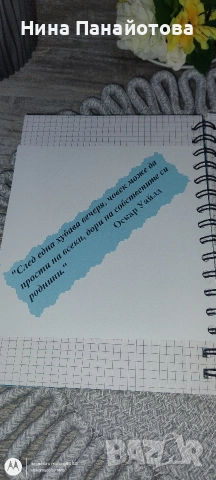 Нина Панайотова
"След една хубава вечеря, човек може да
прости на всеки, дори на собствените си
роднини."
Оскар Уайлд
BAZAR